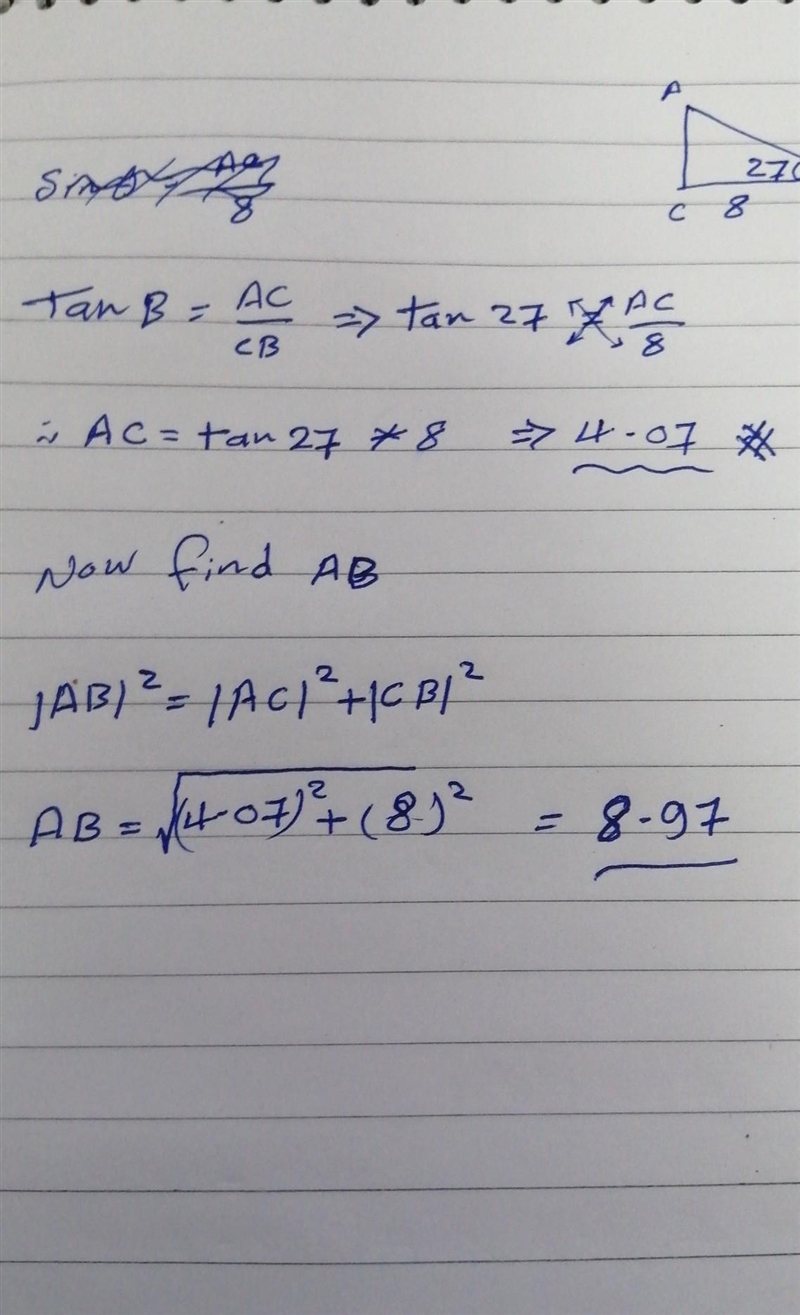 A
27
C 8
Sin
8
Tan B = AC/CB ⇒ tan 27 = AC/8
∴ AC = tan 27 * 8 ⇒ 4.07
Now find AB
|AB|² = |AC|² + |CB|²
AB = √(4.07)² + (8)² = 8.97